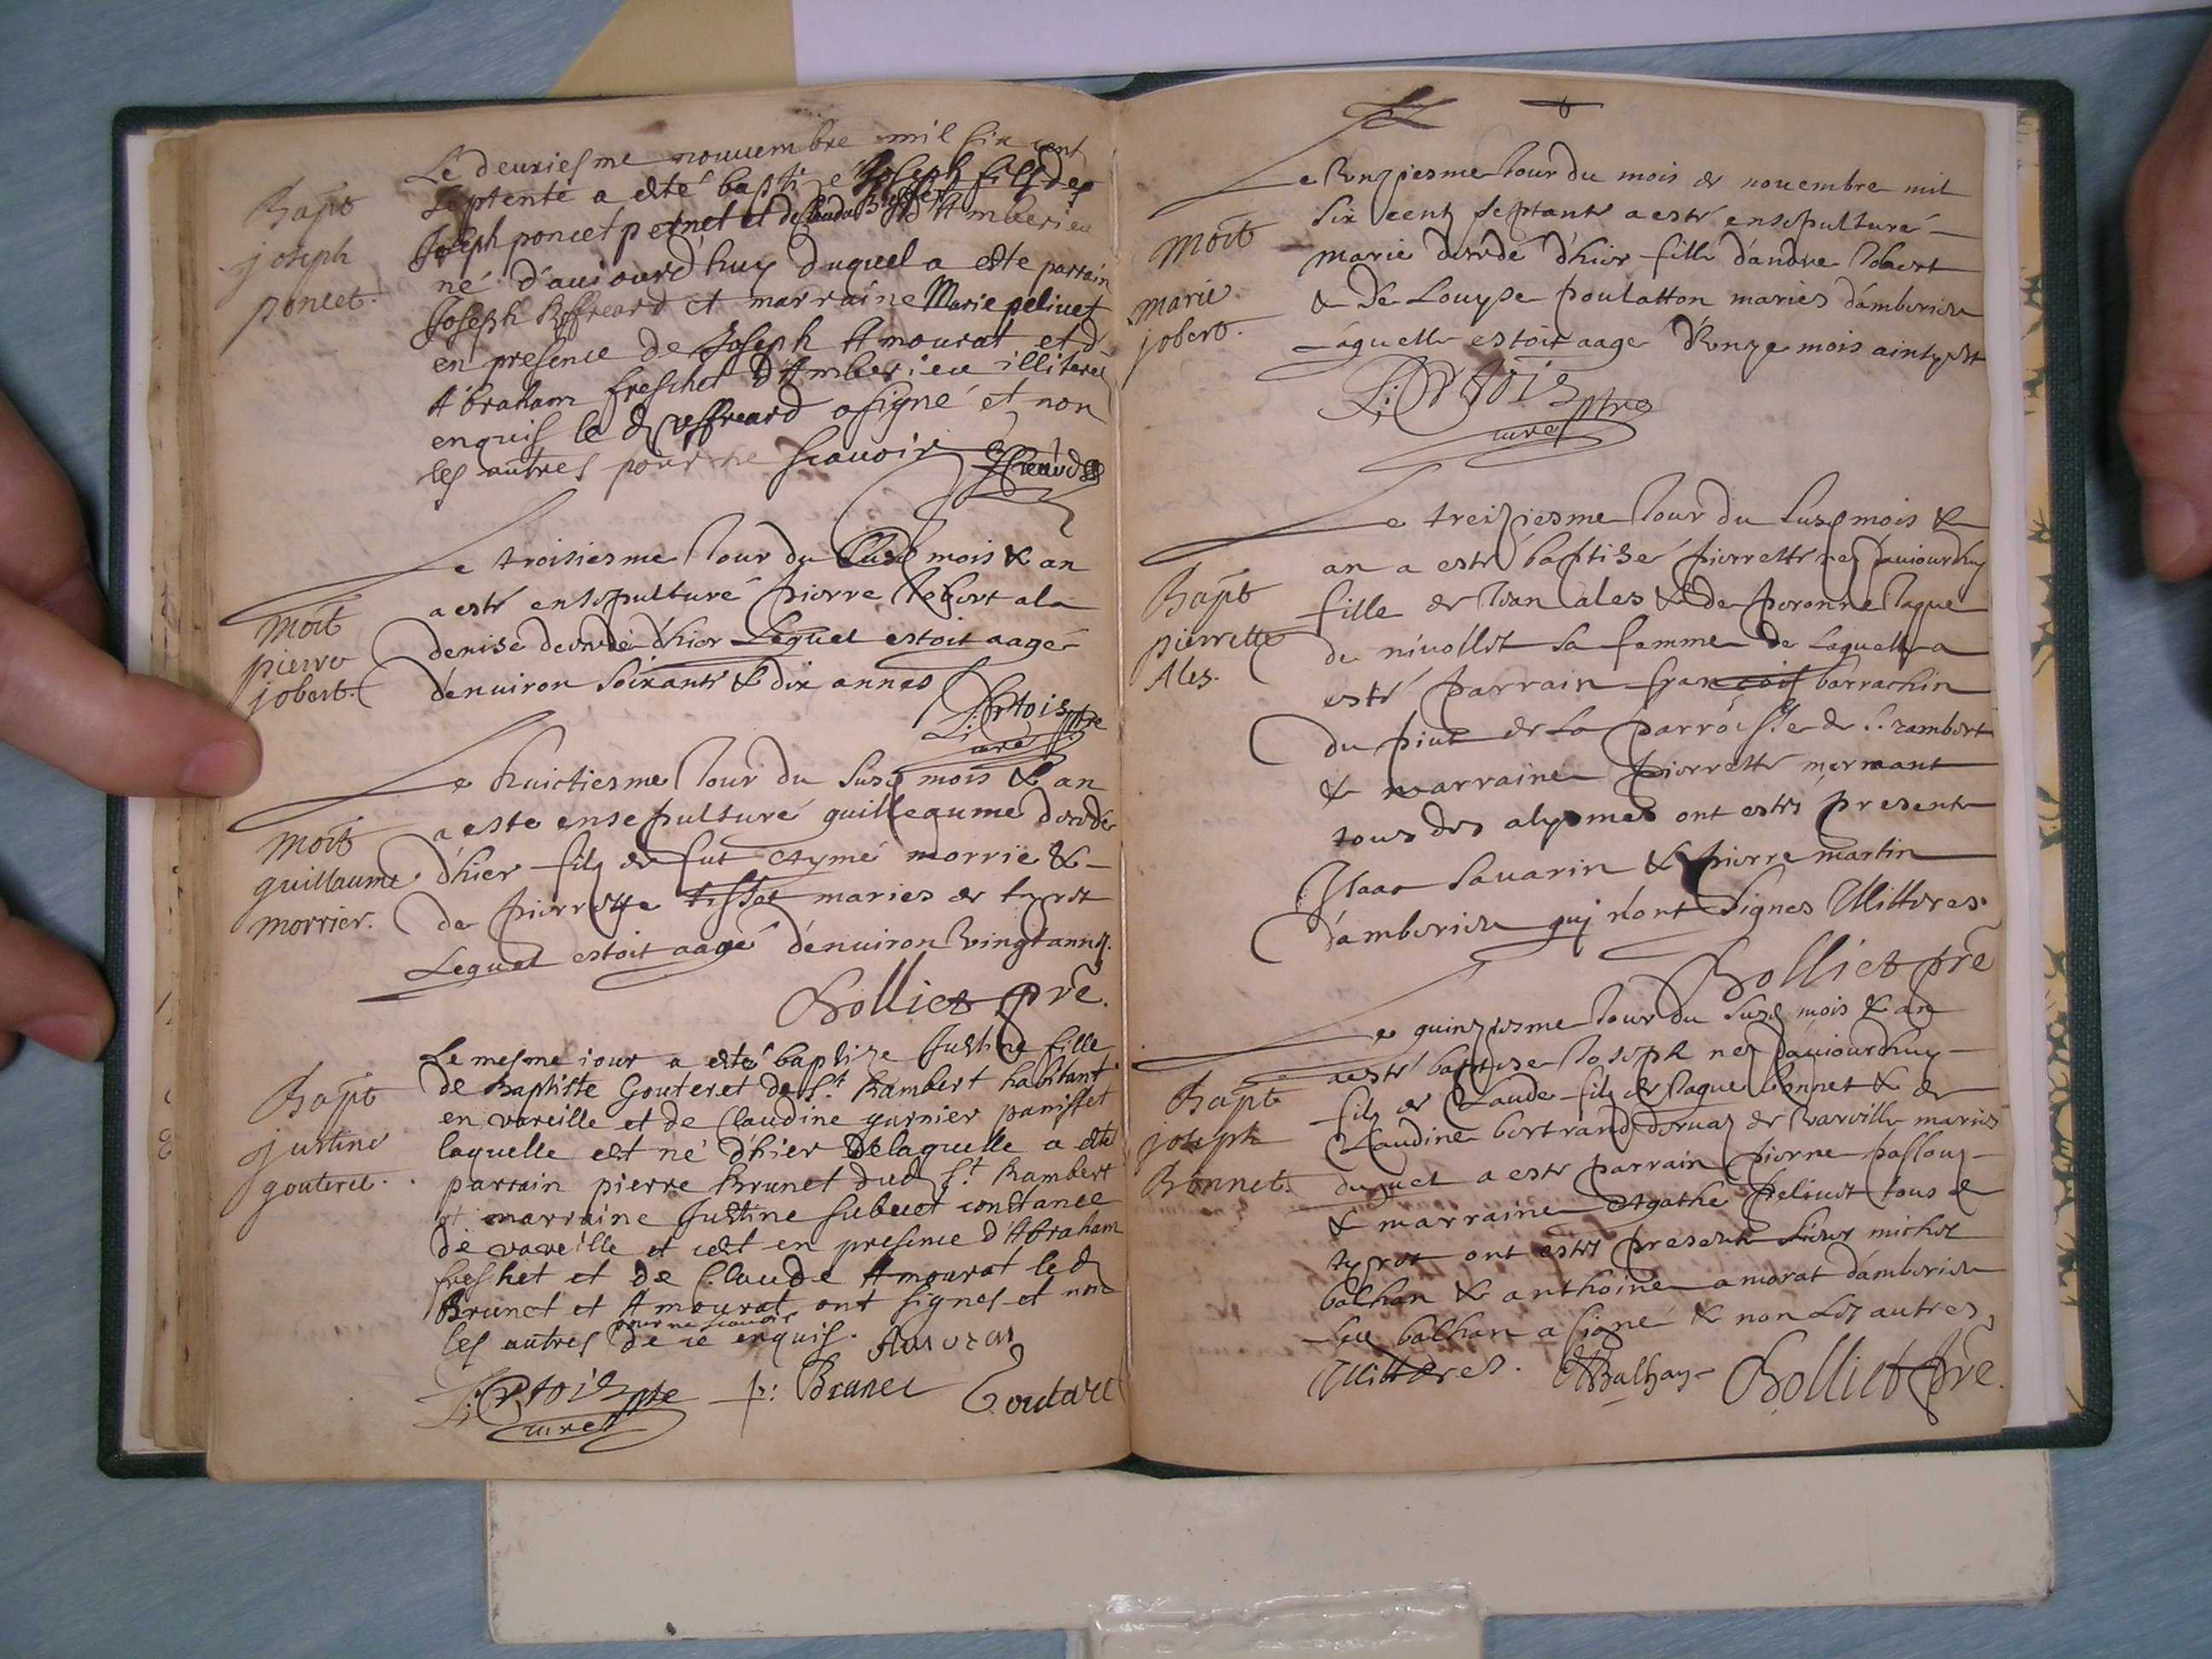 Bapt
joseph
poncet.
Le deuxiesme nouuembre mil six cent
septente a esté baptize Joseph fils de
Joseph poncet pernet et de Clauda d'Amberieu
né d'auiourdhuy duquel a este parrain
Joseph Reffreard et marraine Marie peliuet
en presence de Joseph Amourat et d
Abraham freschet d'Amberieu illiteres
enquis le d reffreard a signé et non
les autres pour ne scauoir
mort
pierre
jobert.
Le troisiesme Jour du susd mois & an
a esté ensepulturé pierre Jobert ala
denise decedé d'hier Lequel estoit aagé
d'enuiron soixante & dix annes
L: Ortois ptre
curé
mort
guillaume
morrier.
Le huictiesme Jour du susd mois & an
a este ensepulturé guilleaume decedé
d'hier fils de fut Aymé morrie &
de pierrette tissot maries de tyret
Lequel estoit aagé d'enuiron vingt anns.
Bolliet pre.
Bapt
justine
gouteret.
Le mesme iour a esté baptize Justine fille
de Baptiste Gouteret de St. Rambert habitant
en vareille et de Claudine garnier panisset
laquelle est né d'hier delaquelle a esté
parrain pierre Brunet dud St Rambert
et marraine Justine subuet constance
de vareille et cest en presence d'Abraham
freschet et de Claude Amourat led
Brunet et Amourat ont signes et non
les autres pour ne scauoir de ce enquis. Amorat
L: Ortois ptre curé p: Brunet Goutaret
mort
marie
jobert.
Le Unziesme Jour du mois de nouembre mil
six cent septante a esté ensepulturé
marie decedé d'hier fille d'andre Jobert
& de Louyse poulatton maries d'amberieu
Laquelle estoit aagé d'Unze mois
L: Ortois ptre
curé
Bapt
pierrette
Ales.
Le treiziesme Jour du susd mois &
an a esté baptisé pierrette né d'auiourdhuy
fille de Jean ales & de peronne Jaque
de niuollet sa femme de Laquelle a
esté parrain françois barrachin
du piut de La parroisse de St. rambert
& marraine pierrette mermant
tous des alysmes ont estés presents
Isaac sauarin & pierre martin
d'amberieu quj n'ont signes Illitteres.
Bolliet pre
Bapt
joseph
Bonnet.
Le quinziesme Jour du susd mois & an
a esté baptise Joseph né d'auiourdhuy
fils de Claude fils de Jaque bonnet & de
Claudine bertrand deruaz de vareille maries
duquel a esté parrain pierre passouz
& marraine Agathe peliuet tous de
tyret ont estés presents sieur michel
balhan & anthoine amorat d'amberieu
Led balhan a signé & non Les autres
Illitteres. Balhan Bolliet pre.